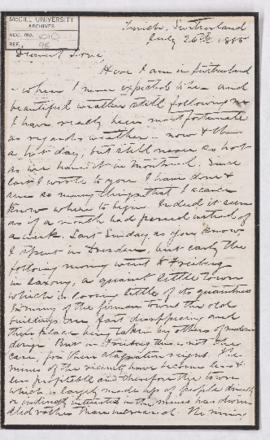 McGILL UNIVERSITY
ARCHIVES
ACC. NO. 1010
REF. 96
Zurich, Switzerland
July 26th 1885
Dearest
Here I am in Switzerland
where I never expected to be and
beautiful weather still following me
I have really been most fortunate
as regards weather - now & then
a hot day, but still never so hot
as we have it in Montreal. Since
last I wrote to you I have done &
seen so many things that I scarce
know where to begin. Indeed it seems
as if a month had passed instead of
a week. Last Sunday, as you know
I spent in Dresden but early the
following morning went to Freiberg
in Saxony, a quaint little town
which is losing little of its quaintness
In many of the German towns the old
buildings are fast disappearing and
their place being taken by others of modern
design. But in Freiberg this is not the
case, for there stagnation reigns. The
mines of the vicinity have become less &
less profitable and therefore the town
which is largely made up of people directly
or indirectly interested in the mines has
rather than increased. The mining